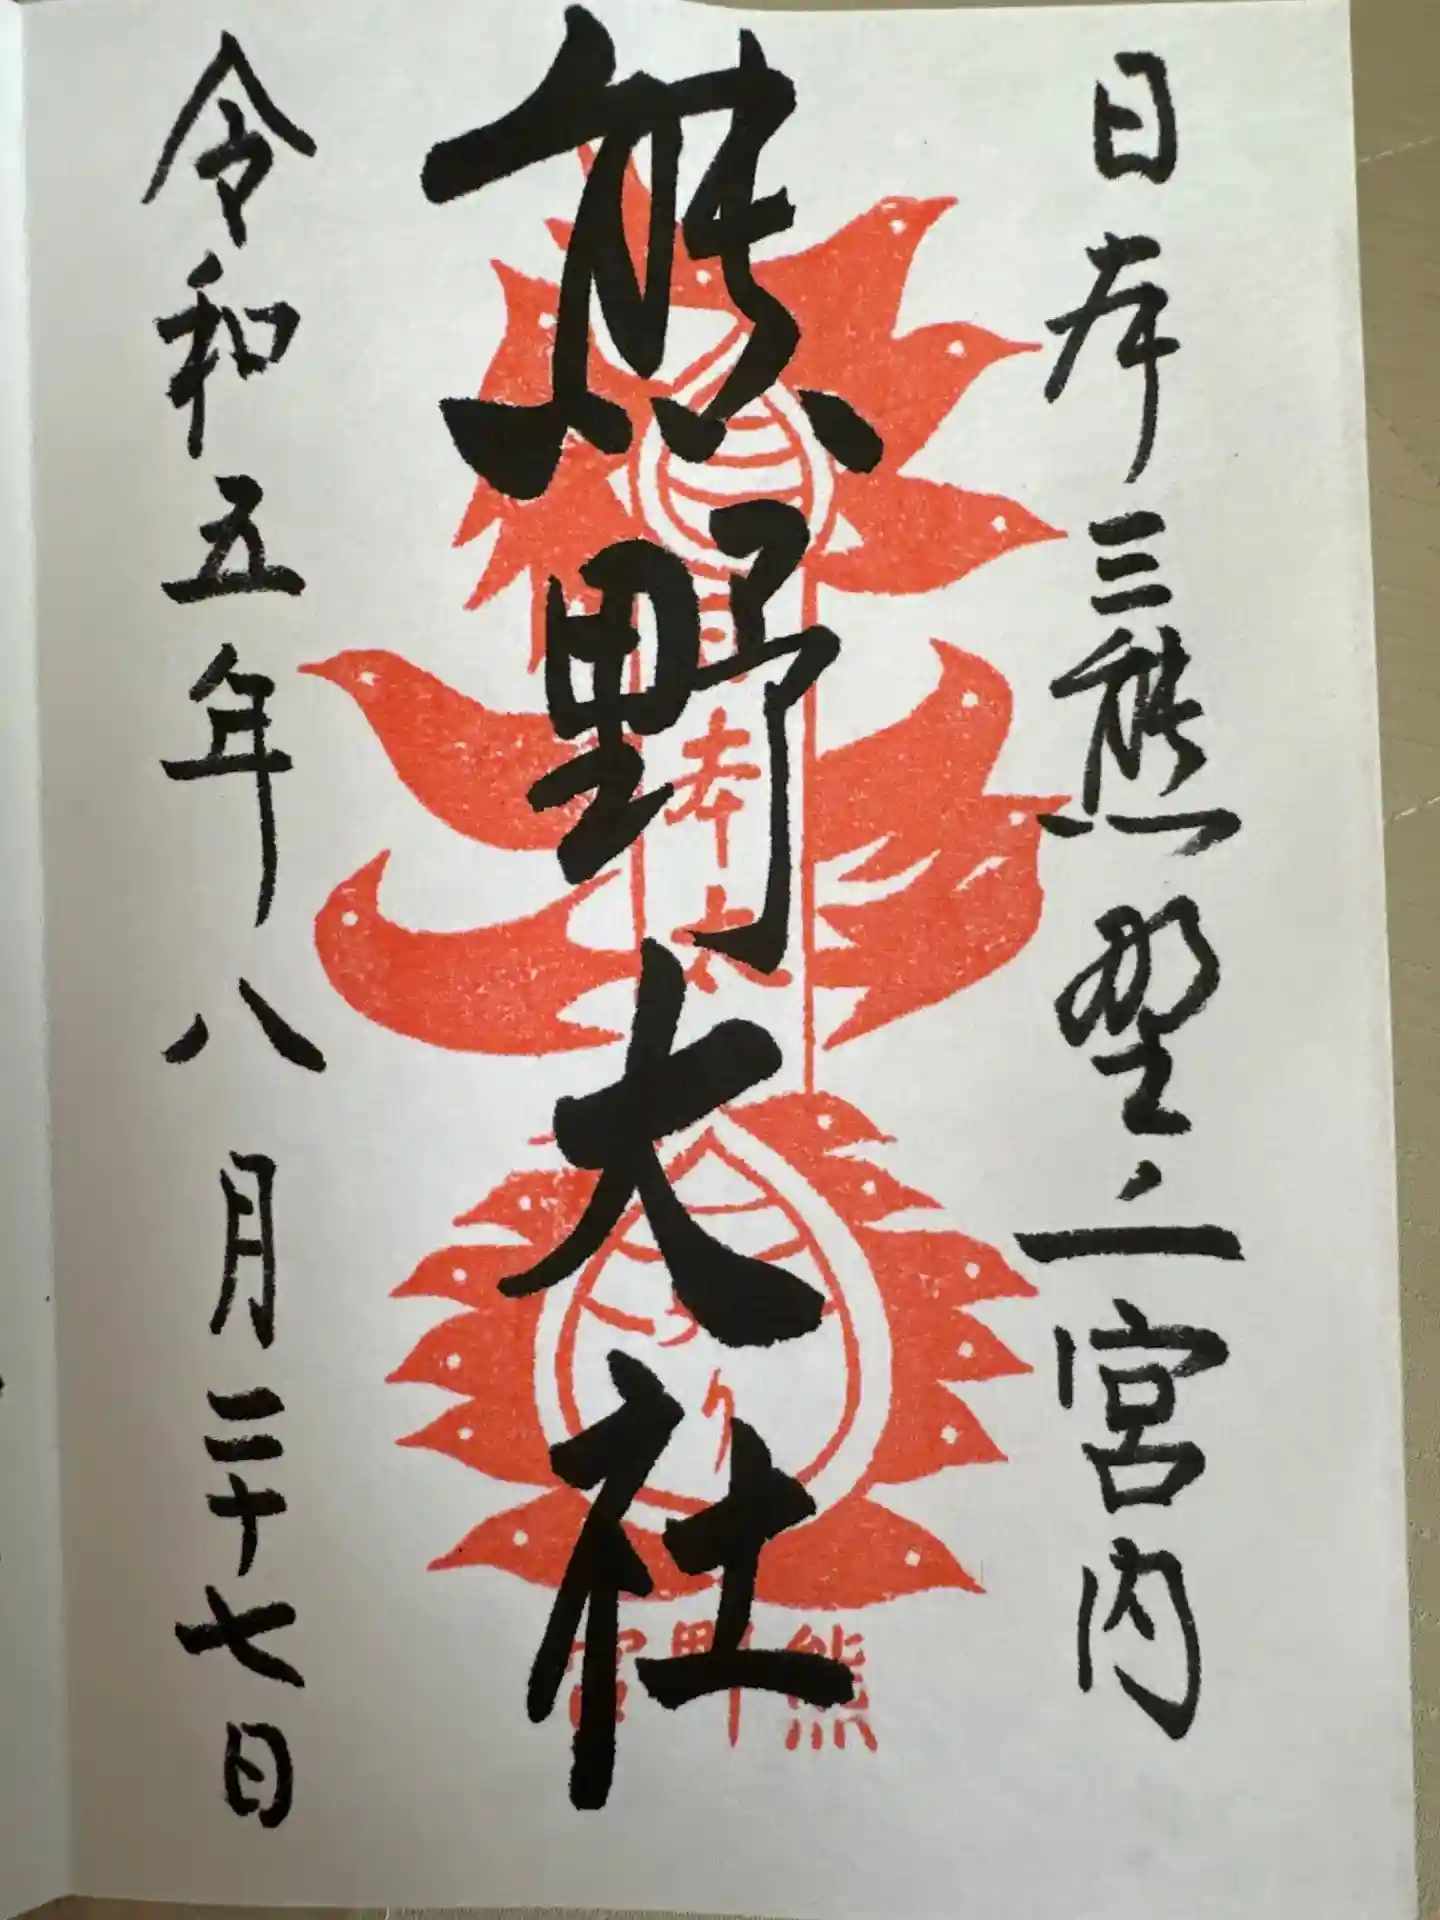 日本三熊野ノ一宮内
熊野大社
令和五年八月二十七日
日本
熊野